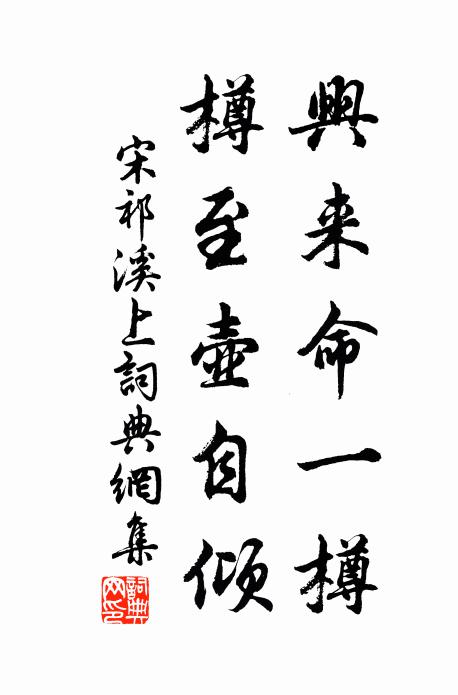 興来命一樽
樽至壺自傾
宋祁溪上詞典網集
詞典網印